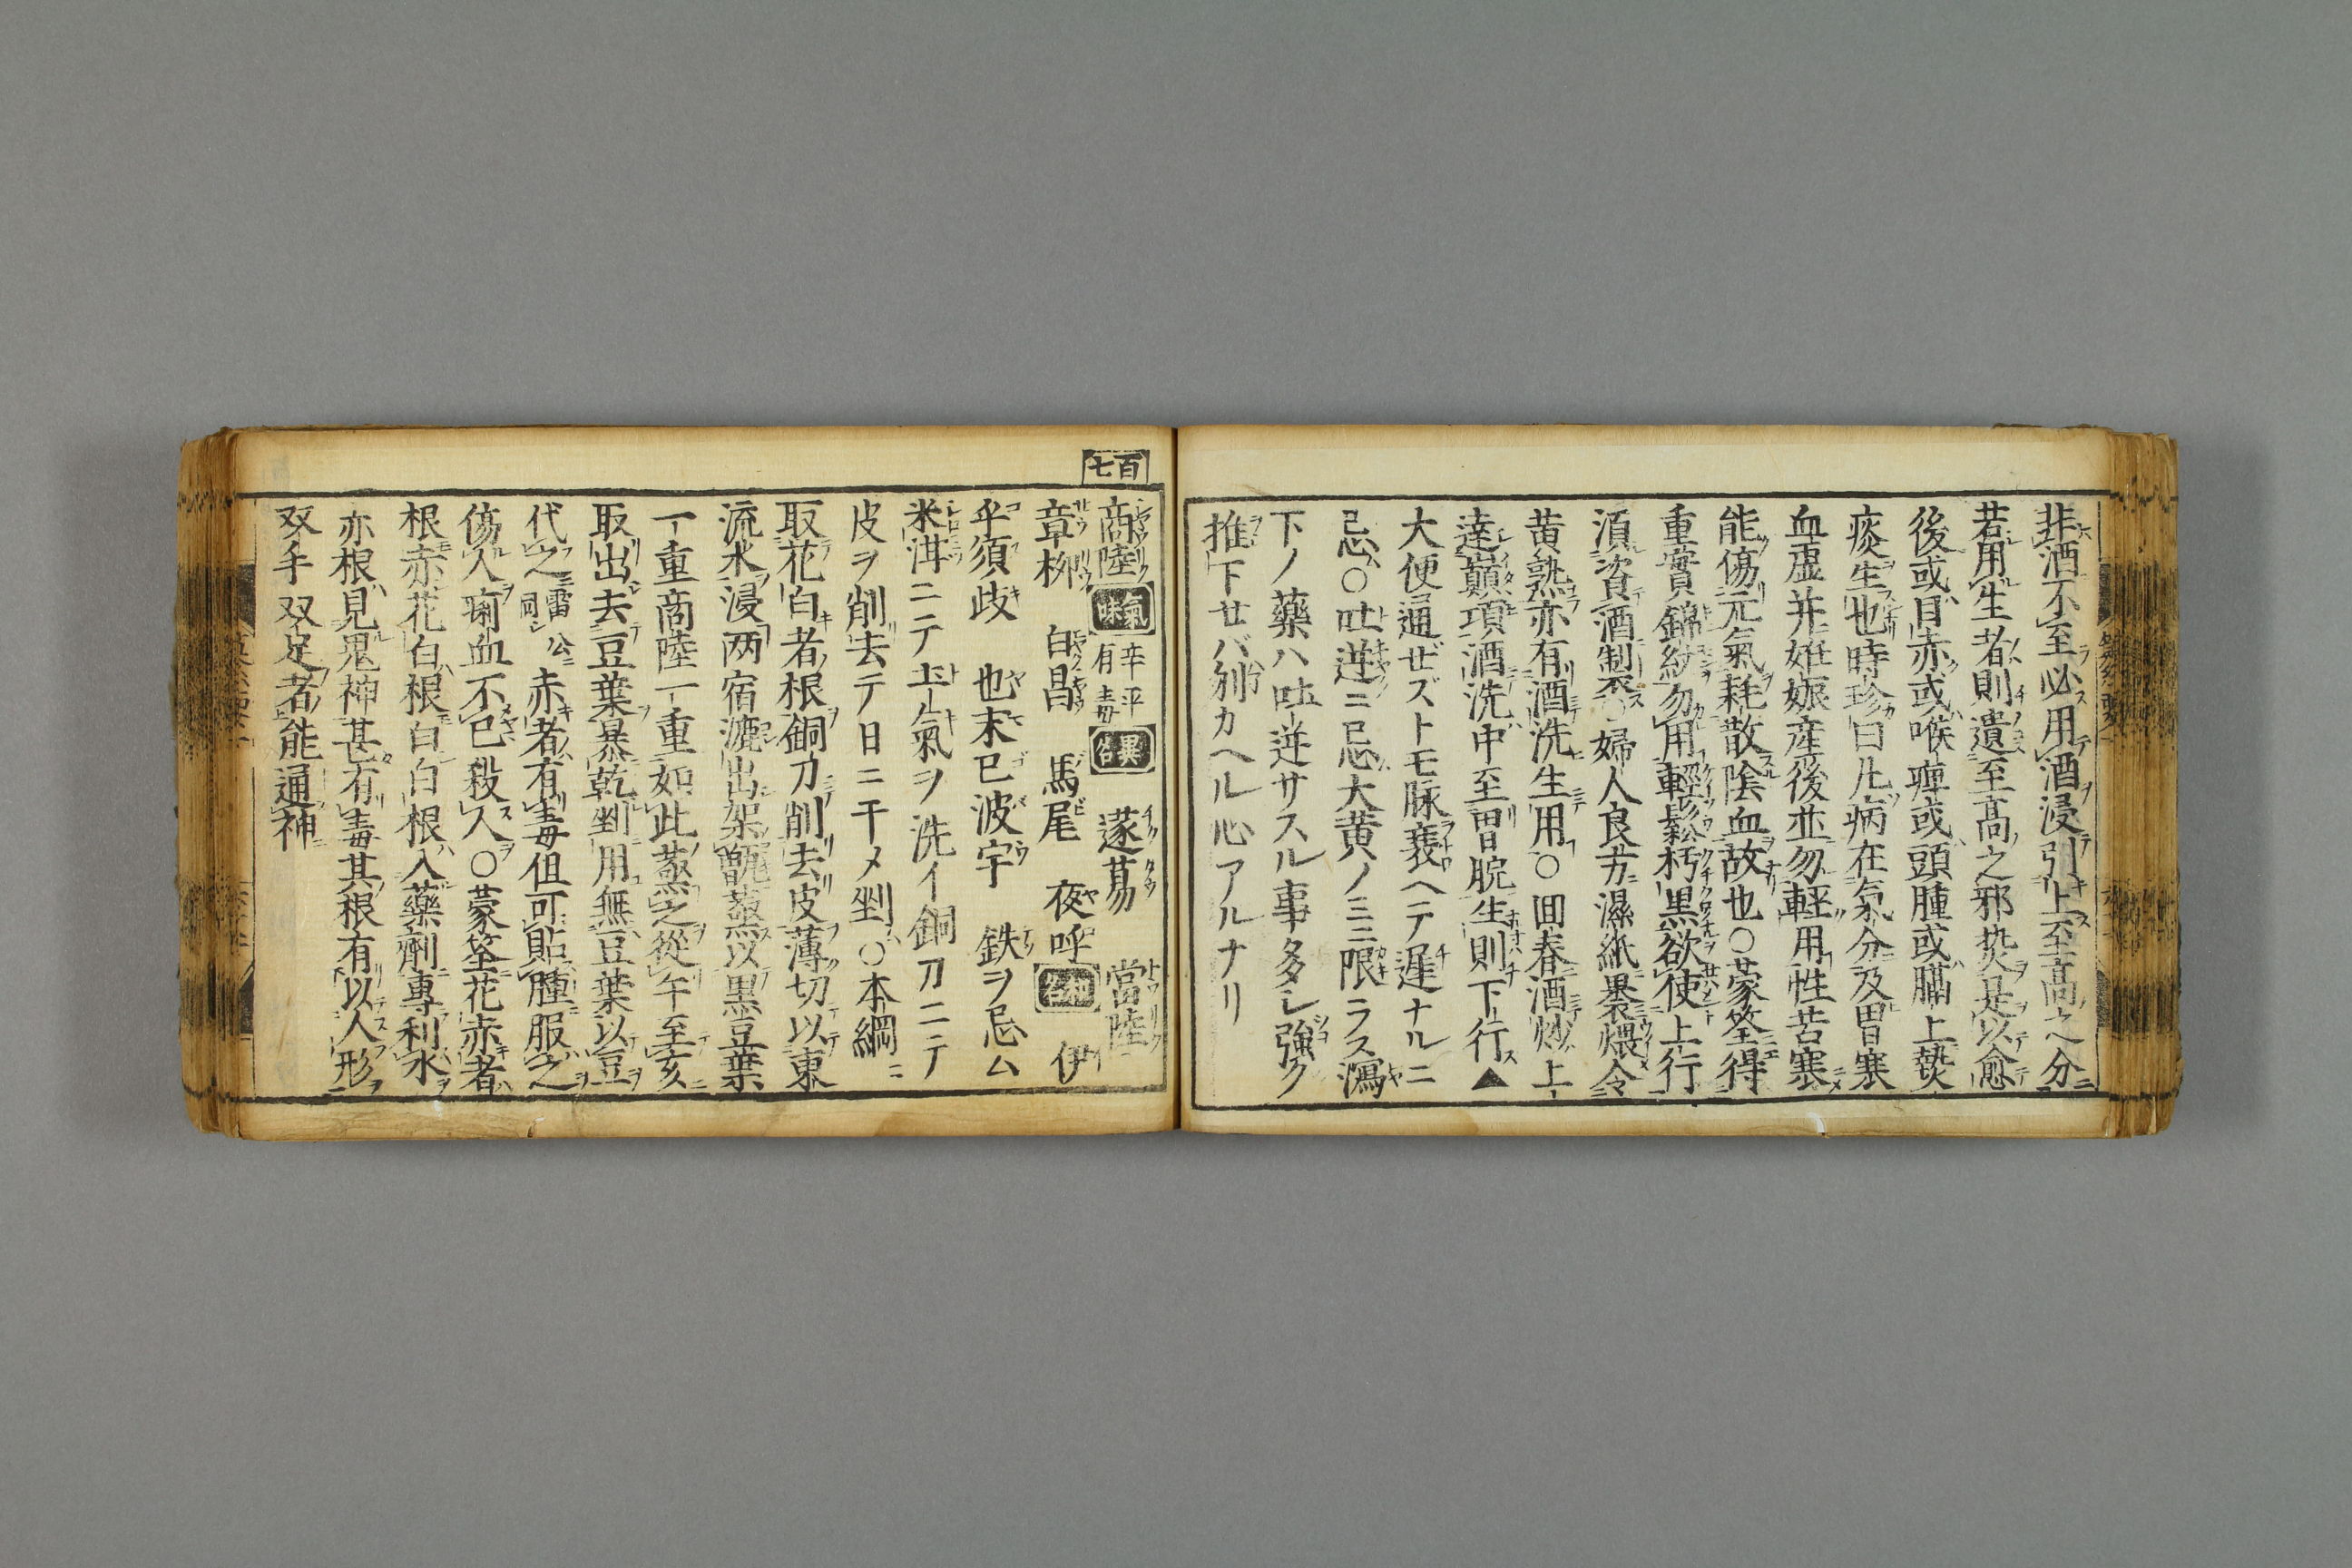 非酒不至必用酒浸引上至高之分
若用生者則遺至高之邪熱是以愈
後或目赤或喉痺或頭腫或膈上熱
痰生也時珍曰凡病在氣分及胃寒
血虛并姙娠產後並勿輕用性苦寒
能傷元氣耗散陰血故也○蒙筌得
重實錦紋勿用輕鬆朽黒欲使上行
須資酒制〇婦人良方濕紙裹煨令
黄熟亦有酒洗生用○回春酒炒上
達巔項酒洗中至胃脘生則下行▲
大便通ゼズトモ脉衰ヘテ遲ナルニ
忌○吐逆ニ忌大黄ノミニ限ラス瀉
下ノ藥ハ吐逆サスル事多シ強ク
推下セバ別カヘル心アルナリ
百七
商陸 氣味 辛平有毒 異名 蓫䔥 當陸
章柳 白昌 馬尾 夜呼 和名 伊
乎須岐 也末己波宇 鉄ヲ忌ム
米泔ニテ土氣ヲ洗イ銅刀ニテ
皮ヲ削去テ日ニ干メ剉○本綱ニ
取花白者根銅刀削去皮薄切以東
流水浸两宿漉出架甑蒸以黒豆葉
一重商陸一重如此蒸之從午至亥
取出去豆葉暴乾剉用無豆葉以豆
代之雷公同シ 赤者有毒但可貼腫服之
傷人痢血不已殺人○蒙筌花赤者
根赤花白根白白根入藥劑專利水
赤根見鬼神甚有毒其根有以人形
双手双足者能通神